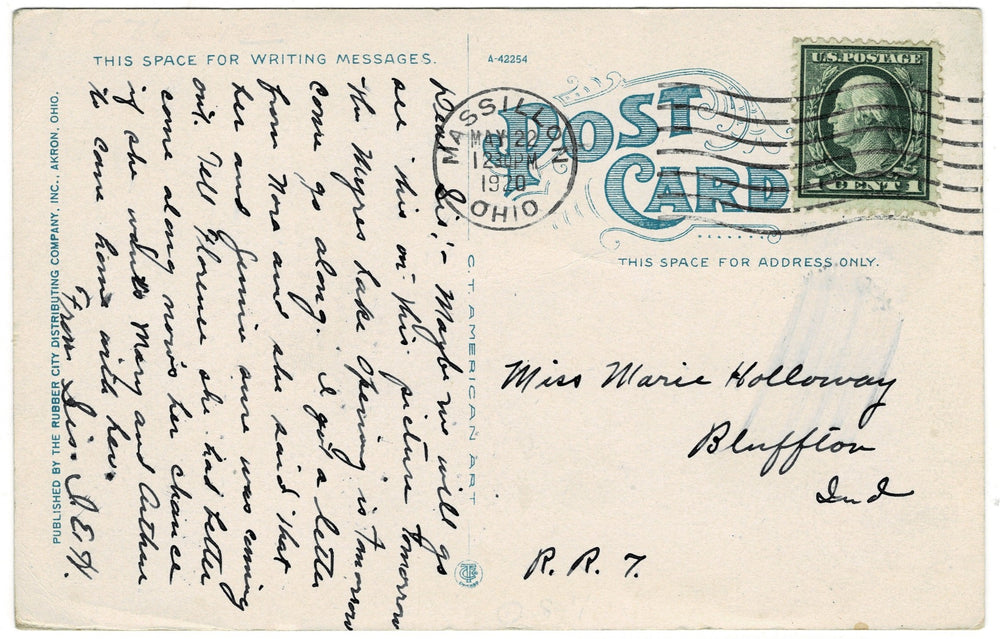 THIS SPACE FOR WRITING MESSAGES.
Dear Sis;- Maybe we will go
see his on this picture tomorrow
the Myers Lake Opening is tomorrow
come go along. I got a letter
from Nora and she said that
her and Jennie sure was coming
out. Tell Florence she had better
come along now's her chance
if she wants Mary and Arthur
to come home with her.
From Sis. A.E.H.
PUBLISHED BY THE RUBBER CITY DISTRIBUTING COMPANY, INC., AKRON, OHIO.
C.T. AMERICAN ART
A-42254
POST
CARD
MASSILLON
MAY 22
1230PM
1920
OHIO
U.S. POSTAGE
1 CENT 1
THIS SPACE FOR ADDRESS ONLY.
Miss Marie Holloway
Bluffton
Ind
R. R. 7.